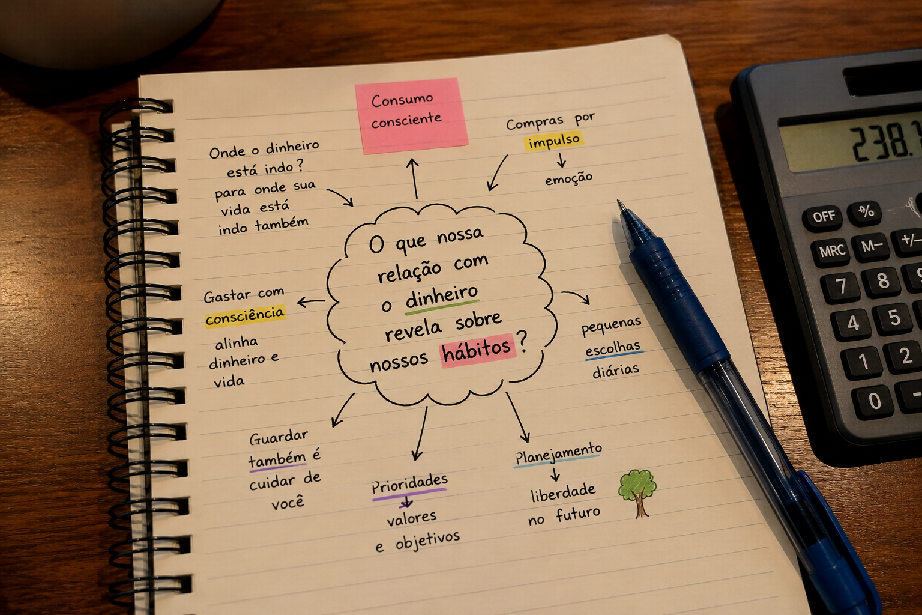 Consumo
consciente
Compras por
impulso
emoção
Onde o dinheiro
está indo?
para onde sua
vida está
indo também
O que nossa
relação com
o dinheiro
revela sobre
nossos hábitos?
Gastar com
consciência
alinha
dinheiro e
vida
pequenas
escolhas
diárias
Guardar
também é
cuidar de
você
Prioridades
valores
e objetivos
Planejamento
liberdade
no futuro
238.
OFF %
MRC M- +/-
7 8 9
4 5
1 2
0